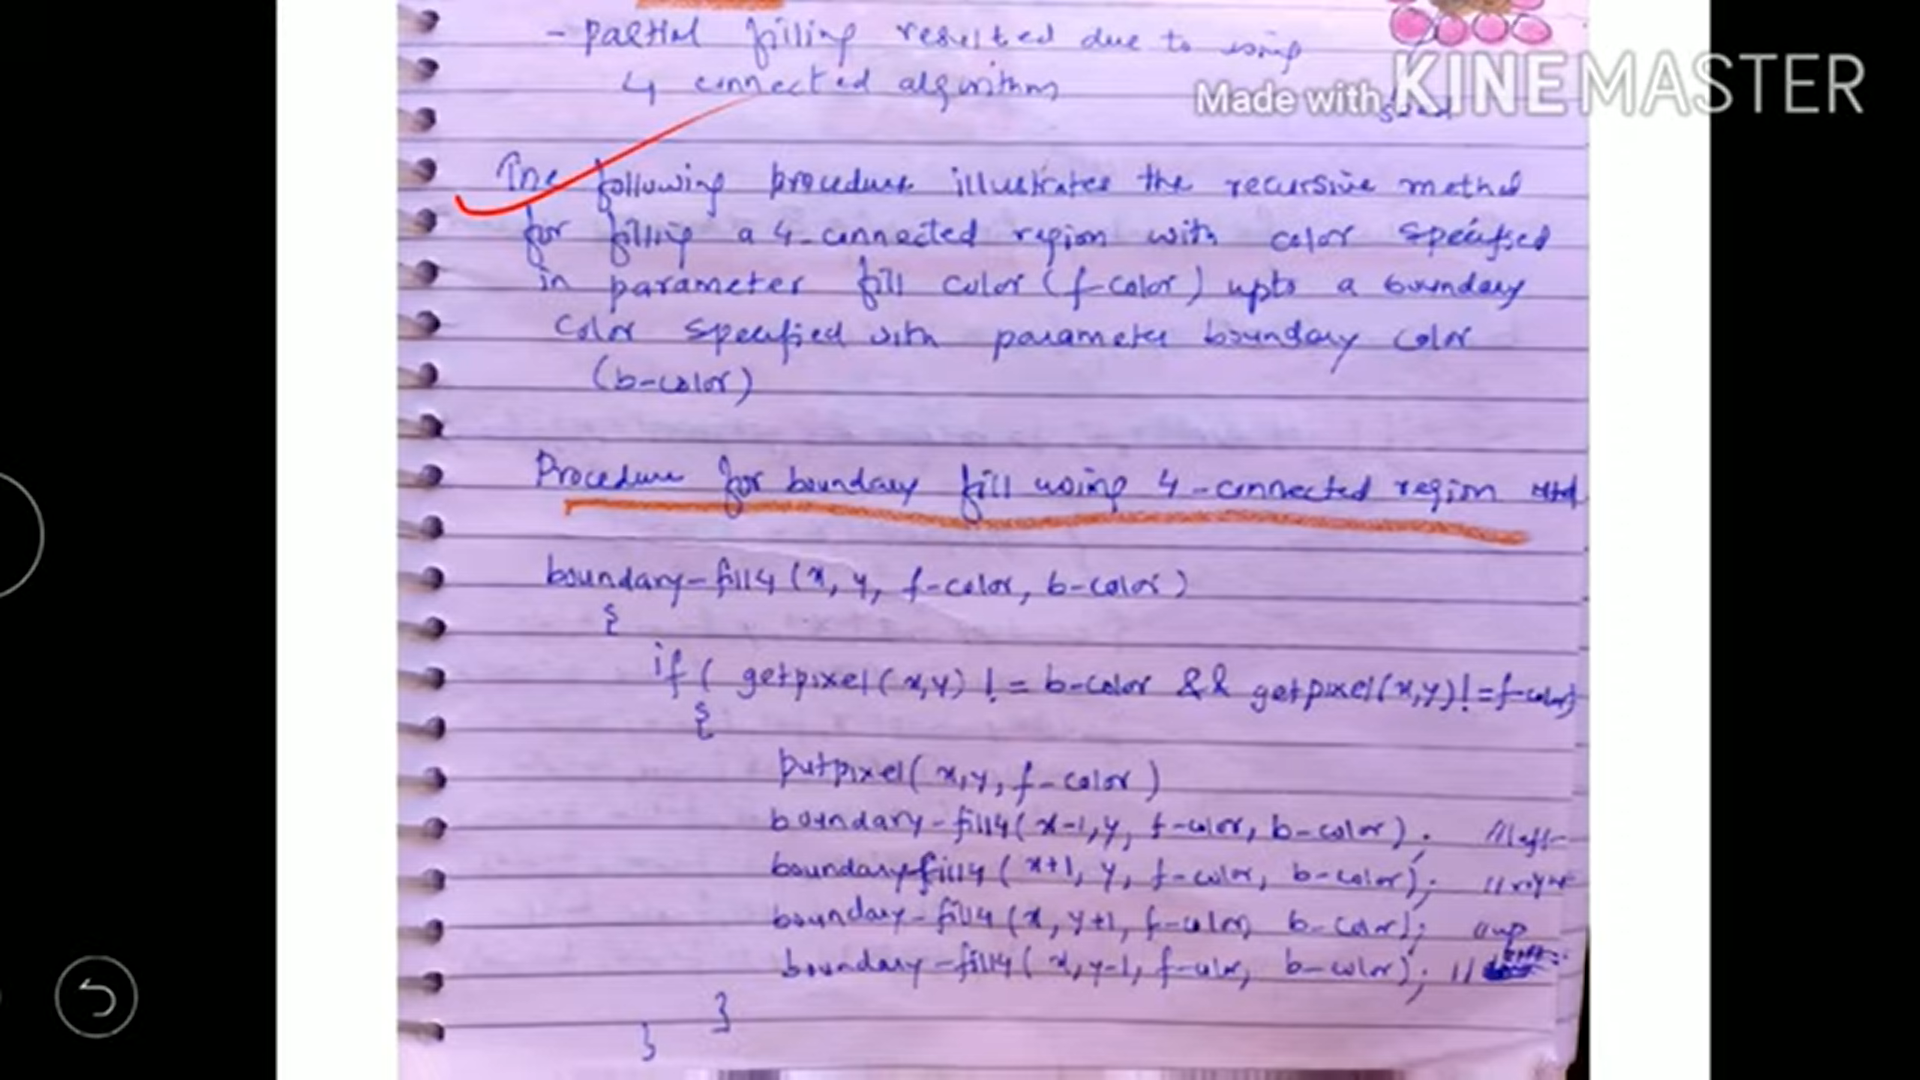 - partial filling resulted due to using
4 connected algorithm
Made with KINEMASTER
The following procedure illustrates the recursive method
for filling a 4-connected region with color specified
in parameter fill color (f-color) upto a boundary
color specified with parameter boundary color
(b-color)
Procedure for boundary fill using 4-connected region
boundary-fill4 (x, y, f-color, b-color)
{
if ( getpixel(x,y) != b-color && getpixel(x,y)!=f-color)
{
putpixel( x,y, f-color )
boundary-fill4( x-1,y, f-color, b-color); //left
boundary-fill4 ( x+1, y, f-color, b-color); //right
boundary-fill4 (x, y+1, f-color, b-color); //up
boundary-fill4( x,y-1, f-color, b-color); //
}
}